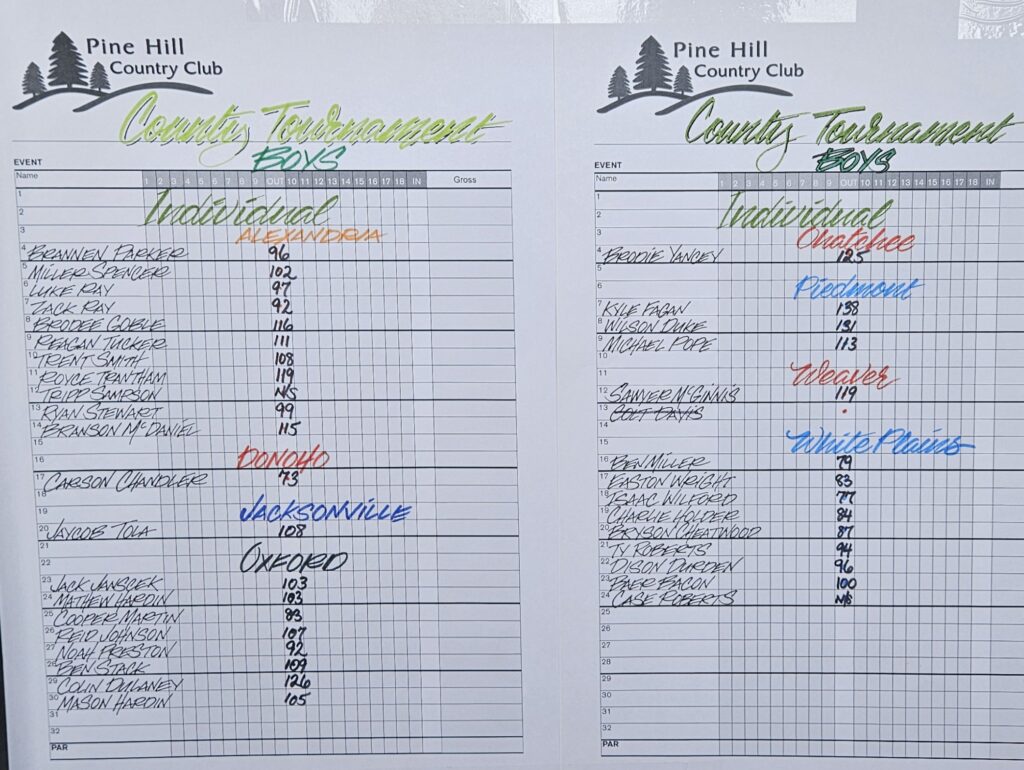 Pine Hill
Country Club
County Tournament
BOYS
EVENT
Name 1 2 3 4 5 6 7 8 9 OUT 10 11 12 13 14 15 16 17 18 IN Gross
1
2 Individual
3 ALEXANDRIA
4 BRANNEN PARKER 96
5 MILLER SPENCER 102
6 LUKE RAY 97
7 ZACK RAY 92
8 BRODEE GOBLE 116
9 REAGAN TUCKER 111
10 TRENT SMITH 108
11 ROYCE TRANTHAM 119
12 TRIPP SAMPSON N/S
13 RYAN STEWART 99
14 BRANSON McDANIEL 115
15
16 DONOHO
17 CARSON CHANDLER 73
18
19 JACKSONVILLE
20 JAYCOB TOLA 108
21
22 OXFORD
23 JACK JANSCEK 103
24 MATHEW HARDIN 103
25 COOPER MARTIN 83
26 REID JOHNSON 107
27 NOAH PRESTON 92
28 BEN STACK 109
29 COLIN DULANEY 126
30 MASON HARDIN 105
31
32
PAR
Pine Hill
Country Club
County Tournament
BOYS
EVENT
Name 1 2 3 4 5 6 7 8 9 OUT 10 11 12 13 14 15 16 17 18 IN
1
2 Individual
3 Ohatchee
4 BRODIE YANCEY 125
5
6 Piedmont
7 KYLE FAGAN 138
8 WILSON DUKE 131
9 MICHAEL POPE 113
10
11 Weaver
12 SAWYER McGINNIS 119
13 COLT DAVIS
14
15 White Plains
16 BEN MILLER 79
17 EASTON WRIGHT 83
18 ISAAC WILFORD 77
19 CHARLIE HOLDER 84
20 BRYSON CHEATWOOD 87
21 TY ROBERTS 94
22 DISON DURDEN 96
23 BAER BACON 100
24 CASE ROBERTS N/S
25
26
27
28
29
30
31
32
PAR